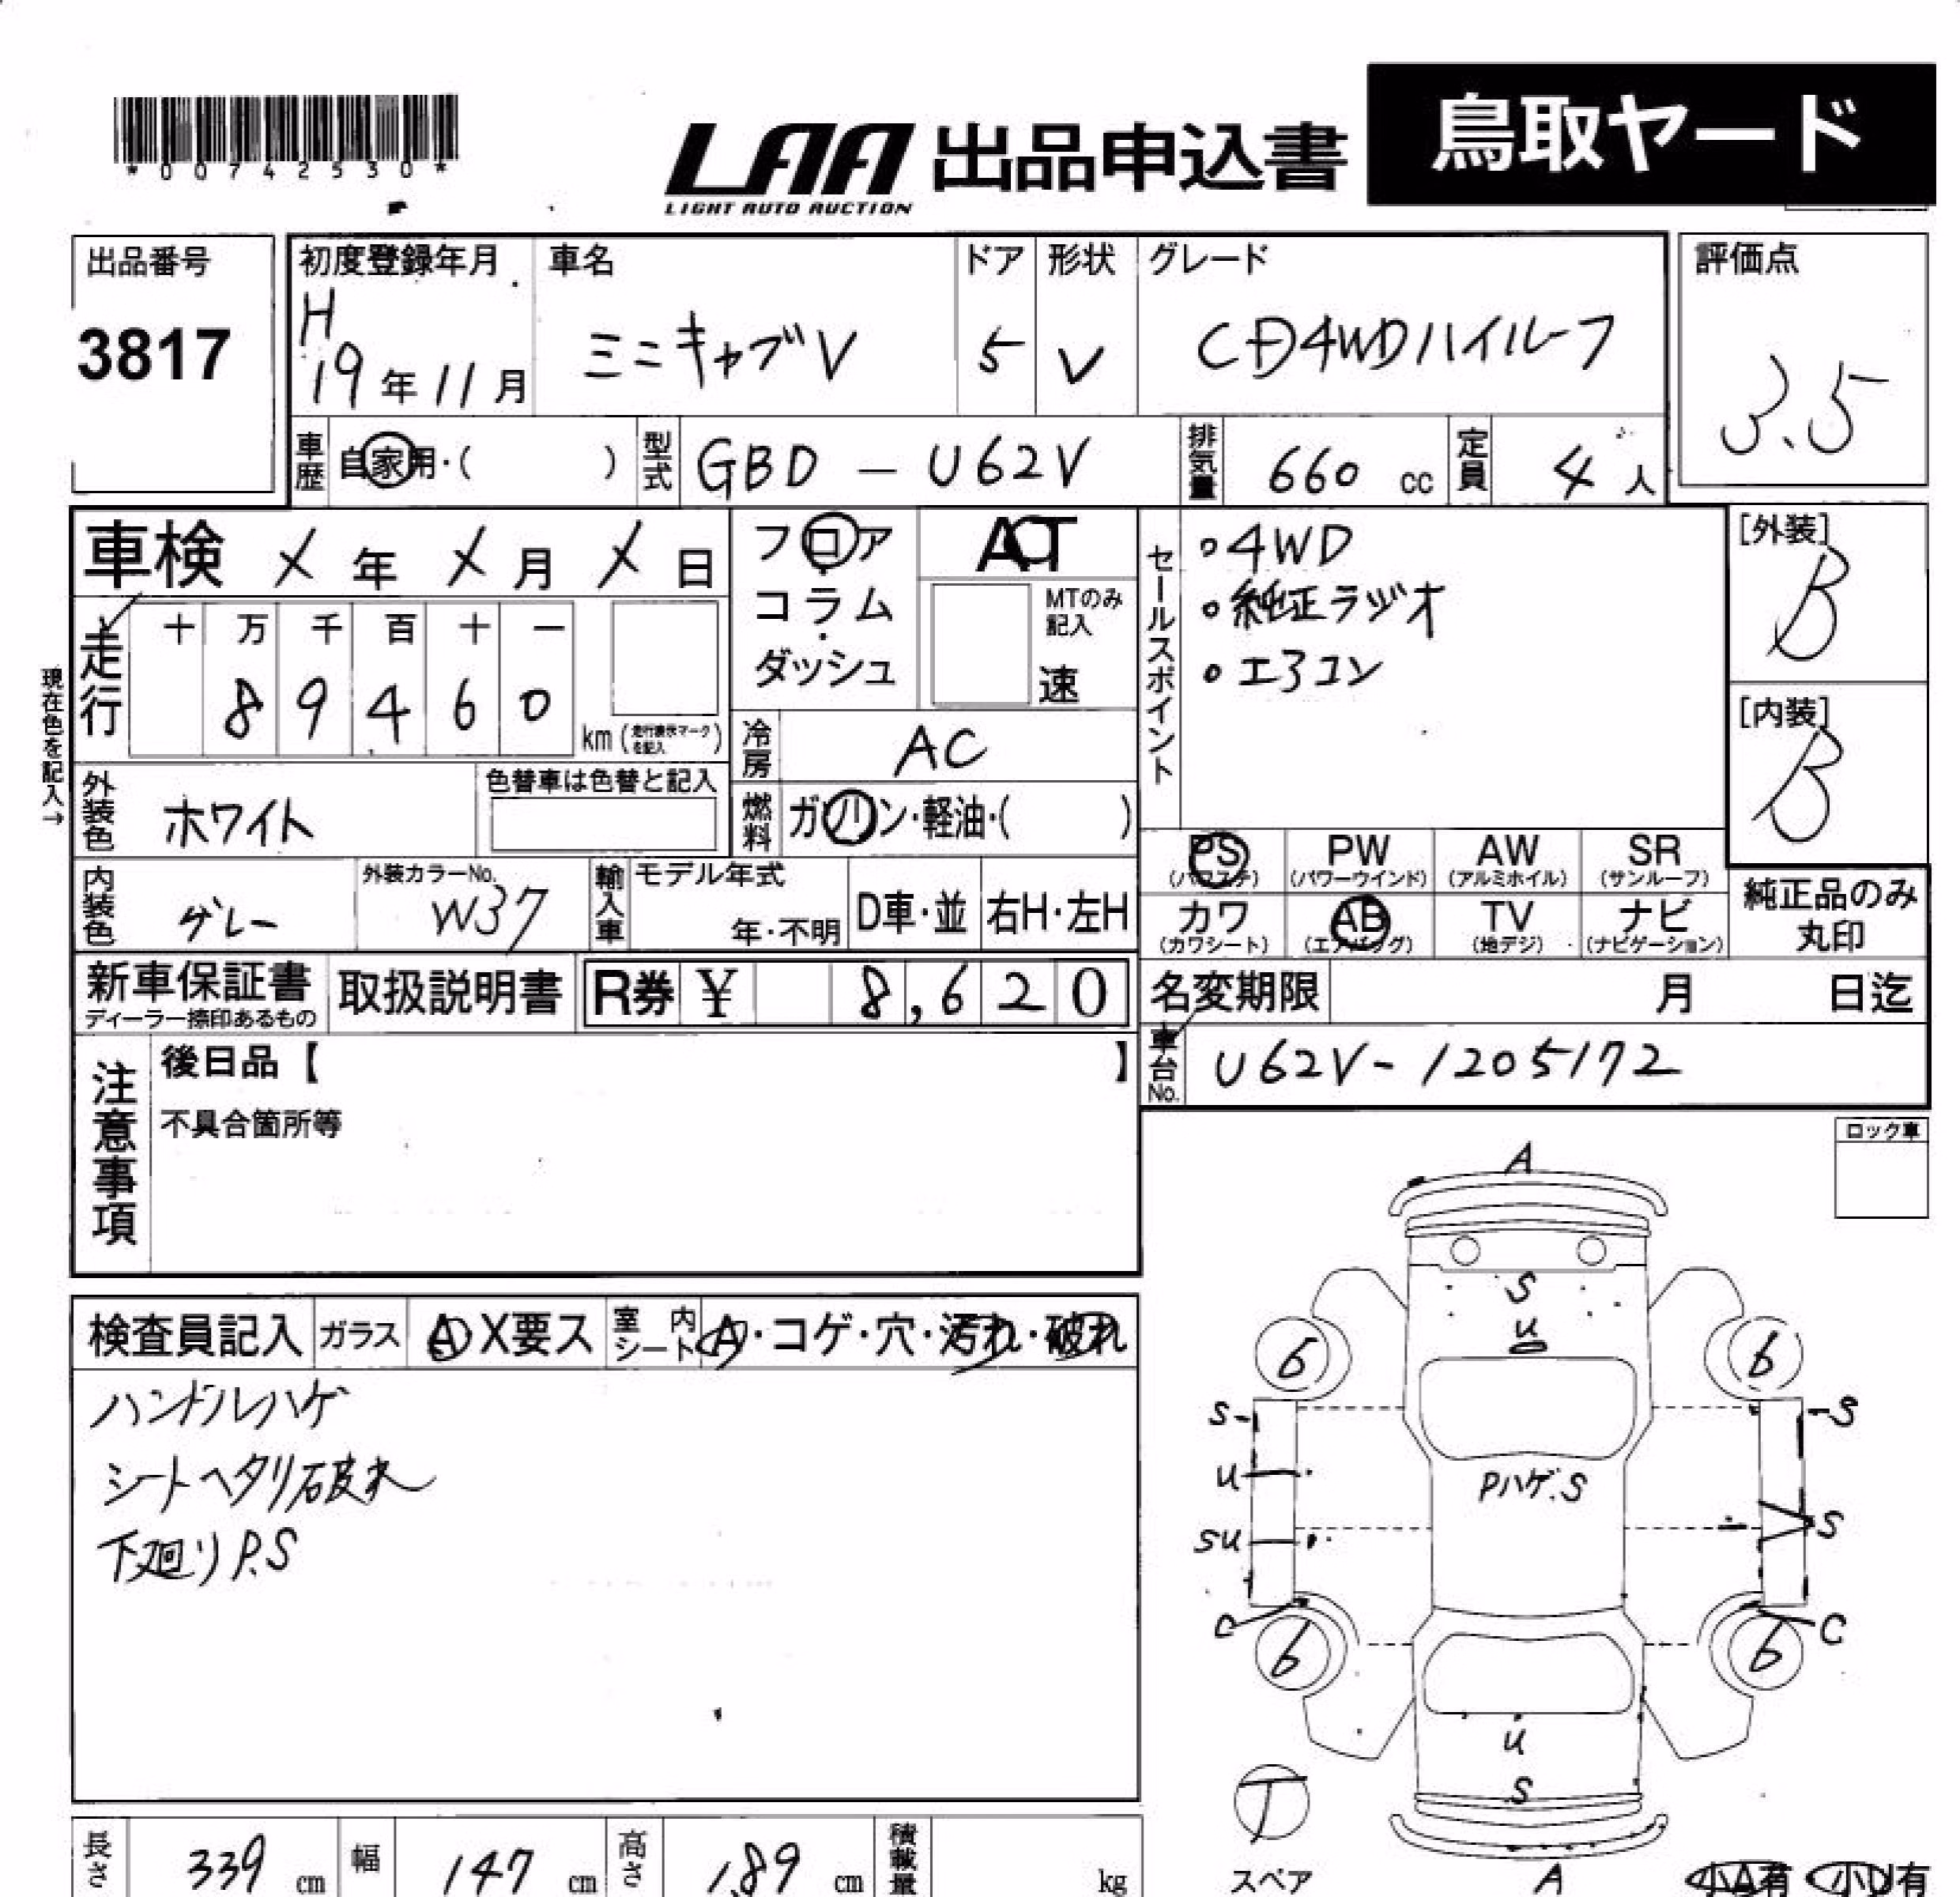 *00742530*
LAA 出品申込書 鳥取ヤード
LIGHT AUTO AUCTION
出品番号 初度登録年月 車名 ドア 形状 グレード 評価点
3817 H19年11月 ミニキャブV 5 V CD4WDハイルーフ 3.5
車歴 自家用・( ) 型式 GBD-U62V 排気量 660 cc 定員 4人
車検 X年 X月 X日 フロア AT セールスポイント ・4WD [外装] B
コラム MTのみ記入 ・純正ラジオ
走行 十 万 千 百 十 一 ダッシュ 速 ・エアコン [内装] B
8 9 4 6 0 km (走行表示マークを記入)
現在色を記入→
冷房 AC
外装色 ホワイト 色替車は色替と記入 燃料 ガソリン・軽油・( )
PS PW AW SR
(パワステ) (パワーウインド) (アルミホイル) (サンルーフ)
内装色 グレー 外装カラーNo. W37 輸入車 モデル年式 年・不明 D車・並 右H・左H
カワ AB TV ナビ 純正品のみ丸印
(カワシート) (エアバッグ) (地デジ) (ナビゲーション)
新車保証書 取扱説明書 R券 ¥ 8,620 名変期限 月 日迄
ディーラー捺印あるもの
注意事項 後日品【 】 車台No. U62V-1205172
不具合箇所等
ロック車
検査員記入 ガラス A X要ス 室内シート A・コゲ・穴・汚れ・破れ
ハンドルハゲ
シートヘタリ破れ
下廻りP.S
A
S
U
6 6
S S
U Pハゲ.S
SU S
C C
6 6
U
S
T
スペア A 小A有 小U有
長さ 339 cm 幅 147 cm 高さ 189 cm 積載量 kg